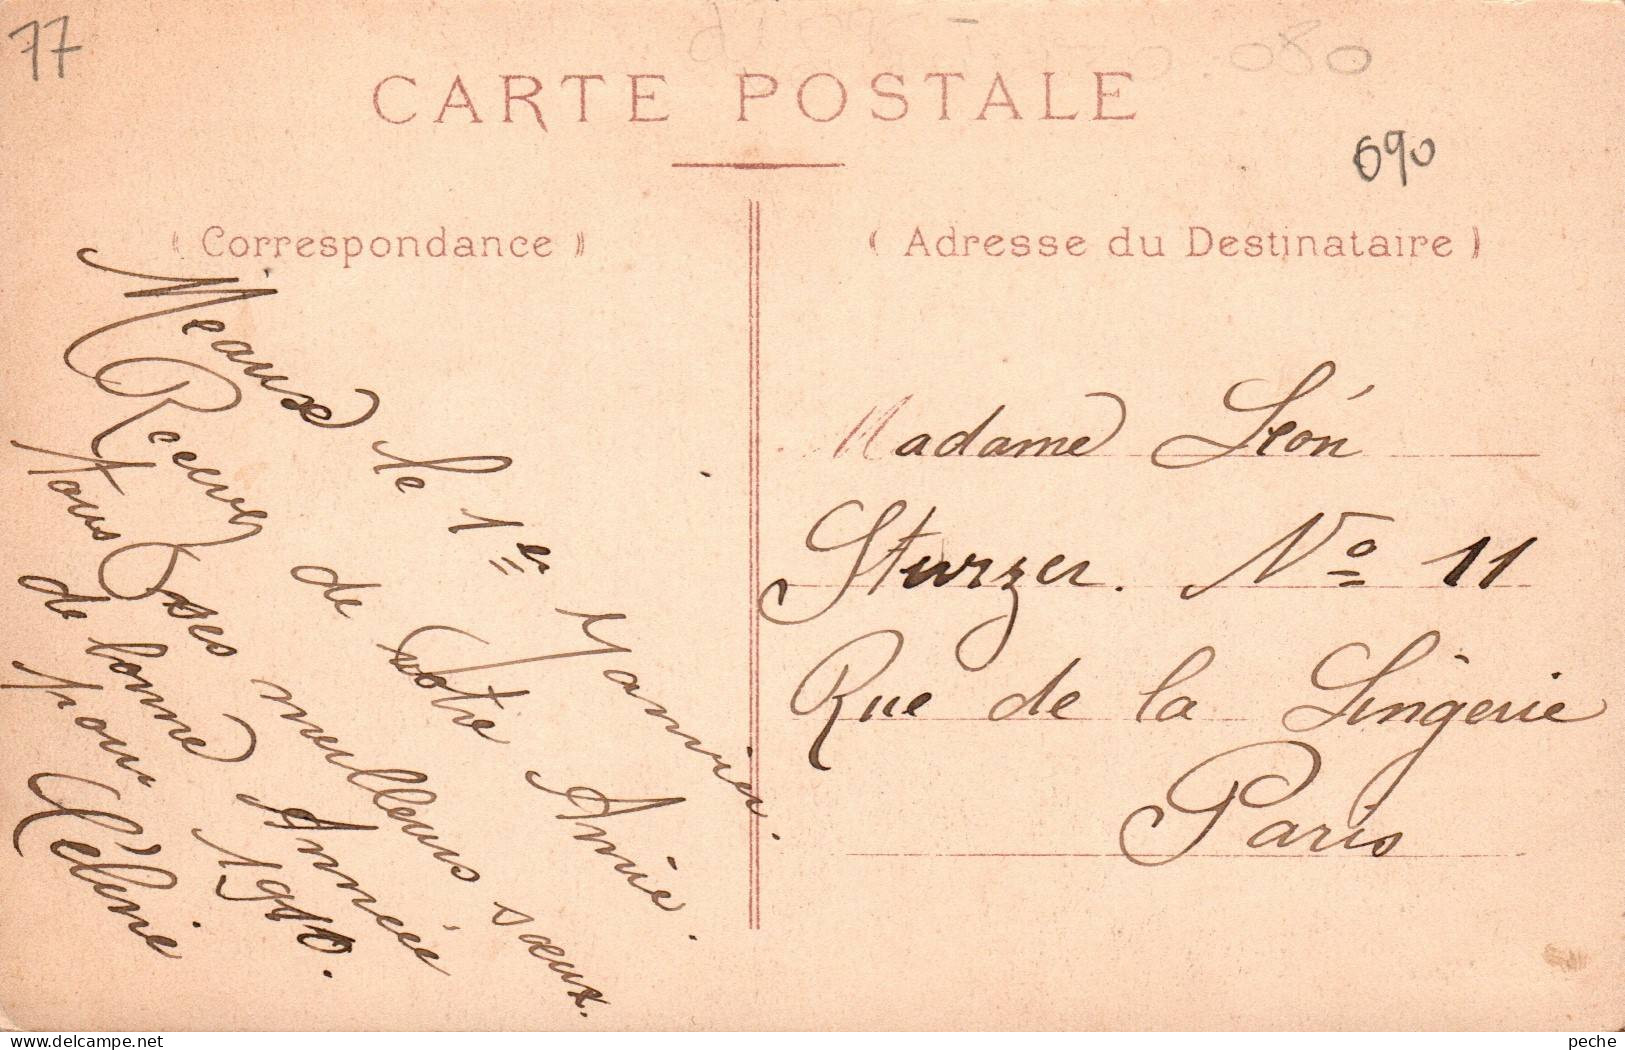 77
CARTE POSTALE
690
( Correspondance )
( Adresse du Destinataire )
Meaux le 1er Janvier.
Recevez de votre Amie.
Tous ses meilleurs sœux.
de bonne Année
pour 1910.
Célinie
Madame Léon
Sturzer. No 11
Rue de la Lingerie
Paris
delcampe.net
peche